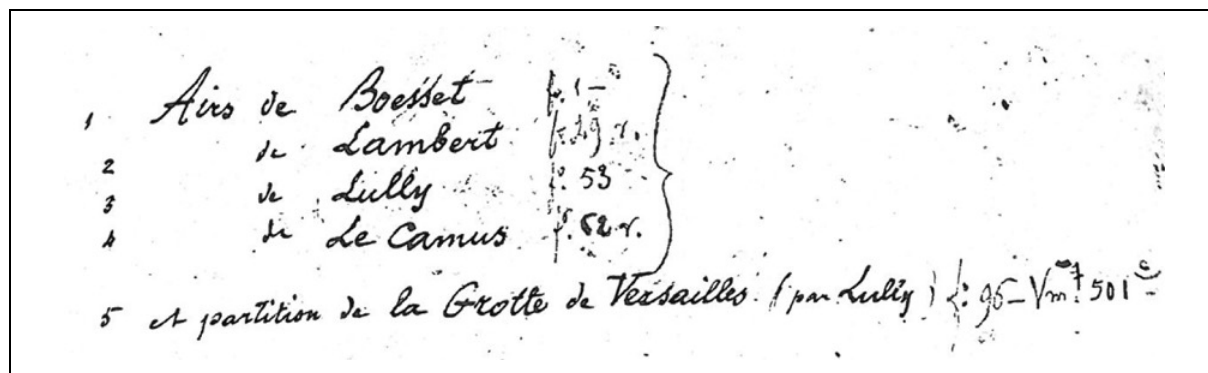 1 Airs de Boesset f. 1
2 de Lambert f. 29 v.
3 de Lully f. 53
4 de Le Camus f. 62 v.
5 et partition de la Grotte de Versailles (par Lully) f. 96 - Vm 7 501